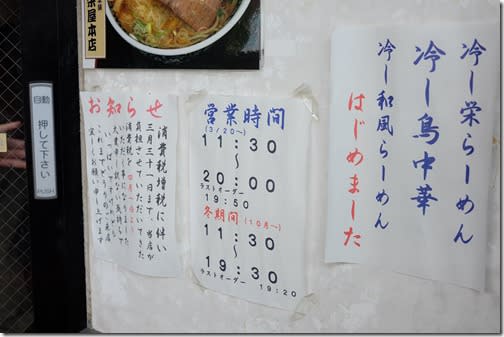 栄屋本店
自動
押して下さい
PUSH
お知らせ
消費税増税に伴い
三月三十一日まで、当店が
負担させていただいてきた
消費税を
いただく事になりました
営業時間
(3/20～)
11：30
～
20：00
ラストオーダー
19：50
冬期間(10月～)
11：30
～
19：30
ラストオーダー 19：20
冷し栄らーめん
冷し鳥中華
冷し和風らーめん
はじめました